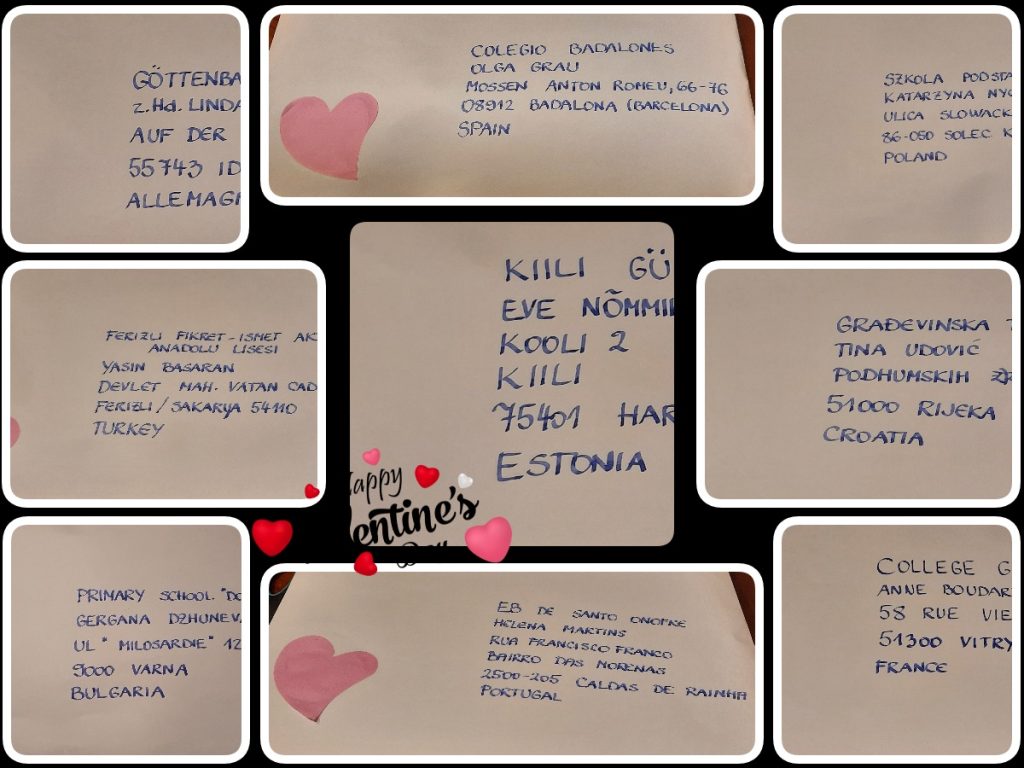 GÖTTENBA
z.Hd. LINDA
AUF DER
55743 ID
ALLEMAG
COLEGIO BADALONES
OLGA GRAU
MOSSEN ANTON ROMEU, 66-76
08912 BADALONA (BARCELONA)
SPAIN
SZKOLA PODSTA
KATARZYNA NYC
ULICA SLOWACK
86-050 SOLEC K
POLAND
FERIZLI FIKRET-ISMET AK
ANADOLU LISESI
YASIN BASARAN
DEVLET MAH. VATAN CAD
FERIZLI / SAKARYA 54110
TURKEY
KIILI GÜ
EVE NÕMMI
KOOLI 2
KIILI
75401 HAR
ESTONIA
Happy
entine's
Day
GRAĐEVINSKA T
TINA UDOVIĆ
PODHUMSKIH
51000 RIJEKA
CROATIA
PRIMARY SCHOOL "DO
GERGANA DZHUNEV
UL " MILOSARDIE" 12
9000 VARNA
BULGARIA
EB DE SANTO ONOFRE
HELENA MARTINS
RUA FRANCISCO FRANCO
BAIRRO DAS MORENAS
2500-205 CALDAS DE RAINHA
PORTUGAL
COLLEGE G
ANNE BOUDAR
58 RUE VIE
51300 VITRY
FRANCE